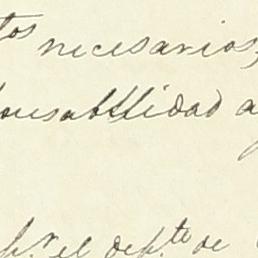 tos necesarios,
ponsabilidad a
pr. el depto. de